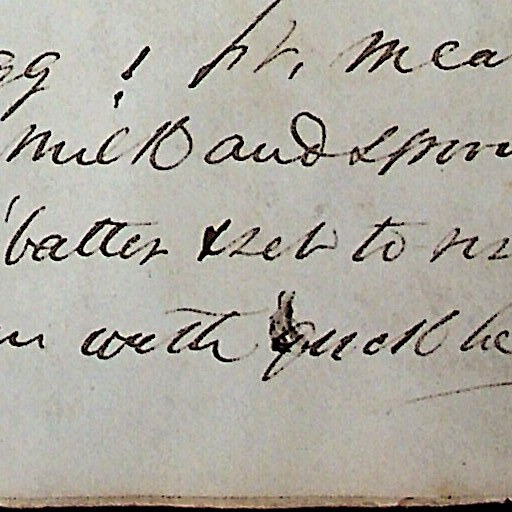 gg 1 pt, mea
milk and spon
batter & set to ris
n with quick he